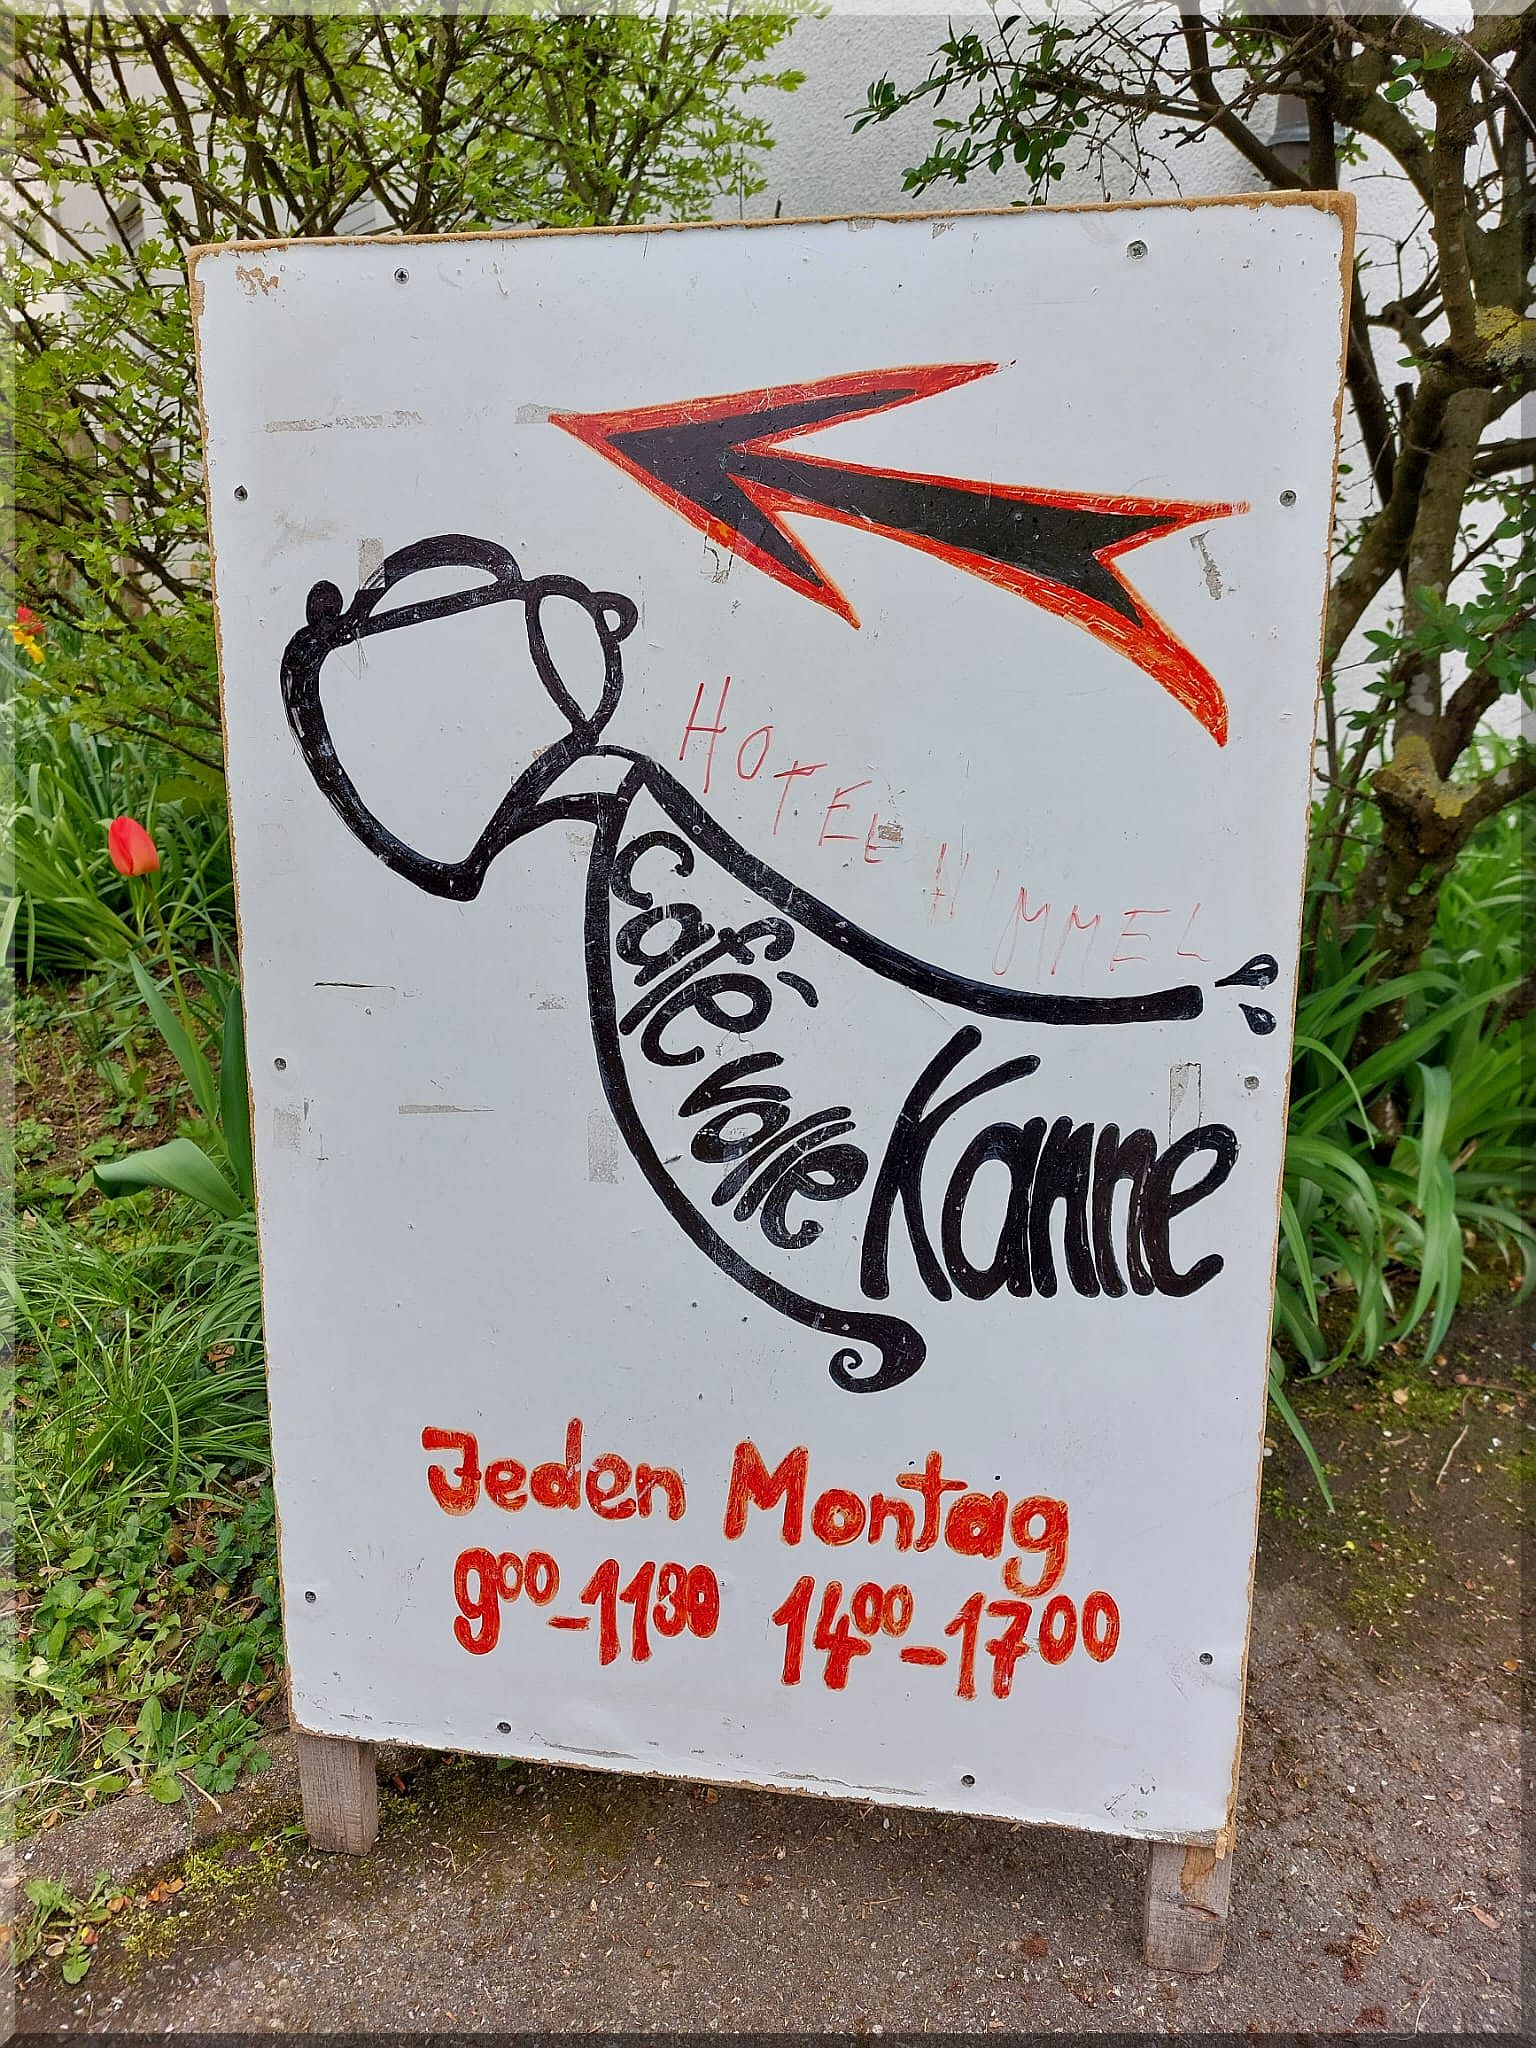 HOTEL HIMMEL
café volle Kanne
Jeden Montag
9⁰⁰-11³⁰ 14⁰⁰-17⁰⁰